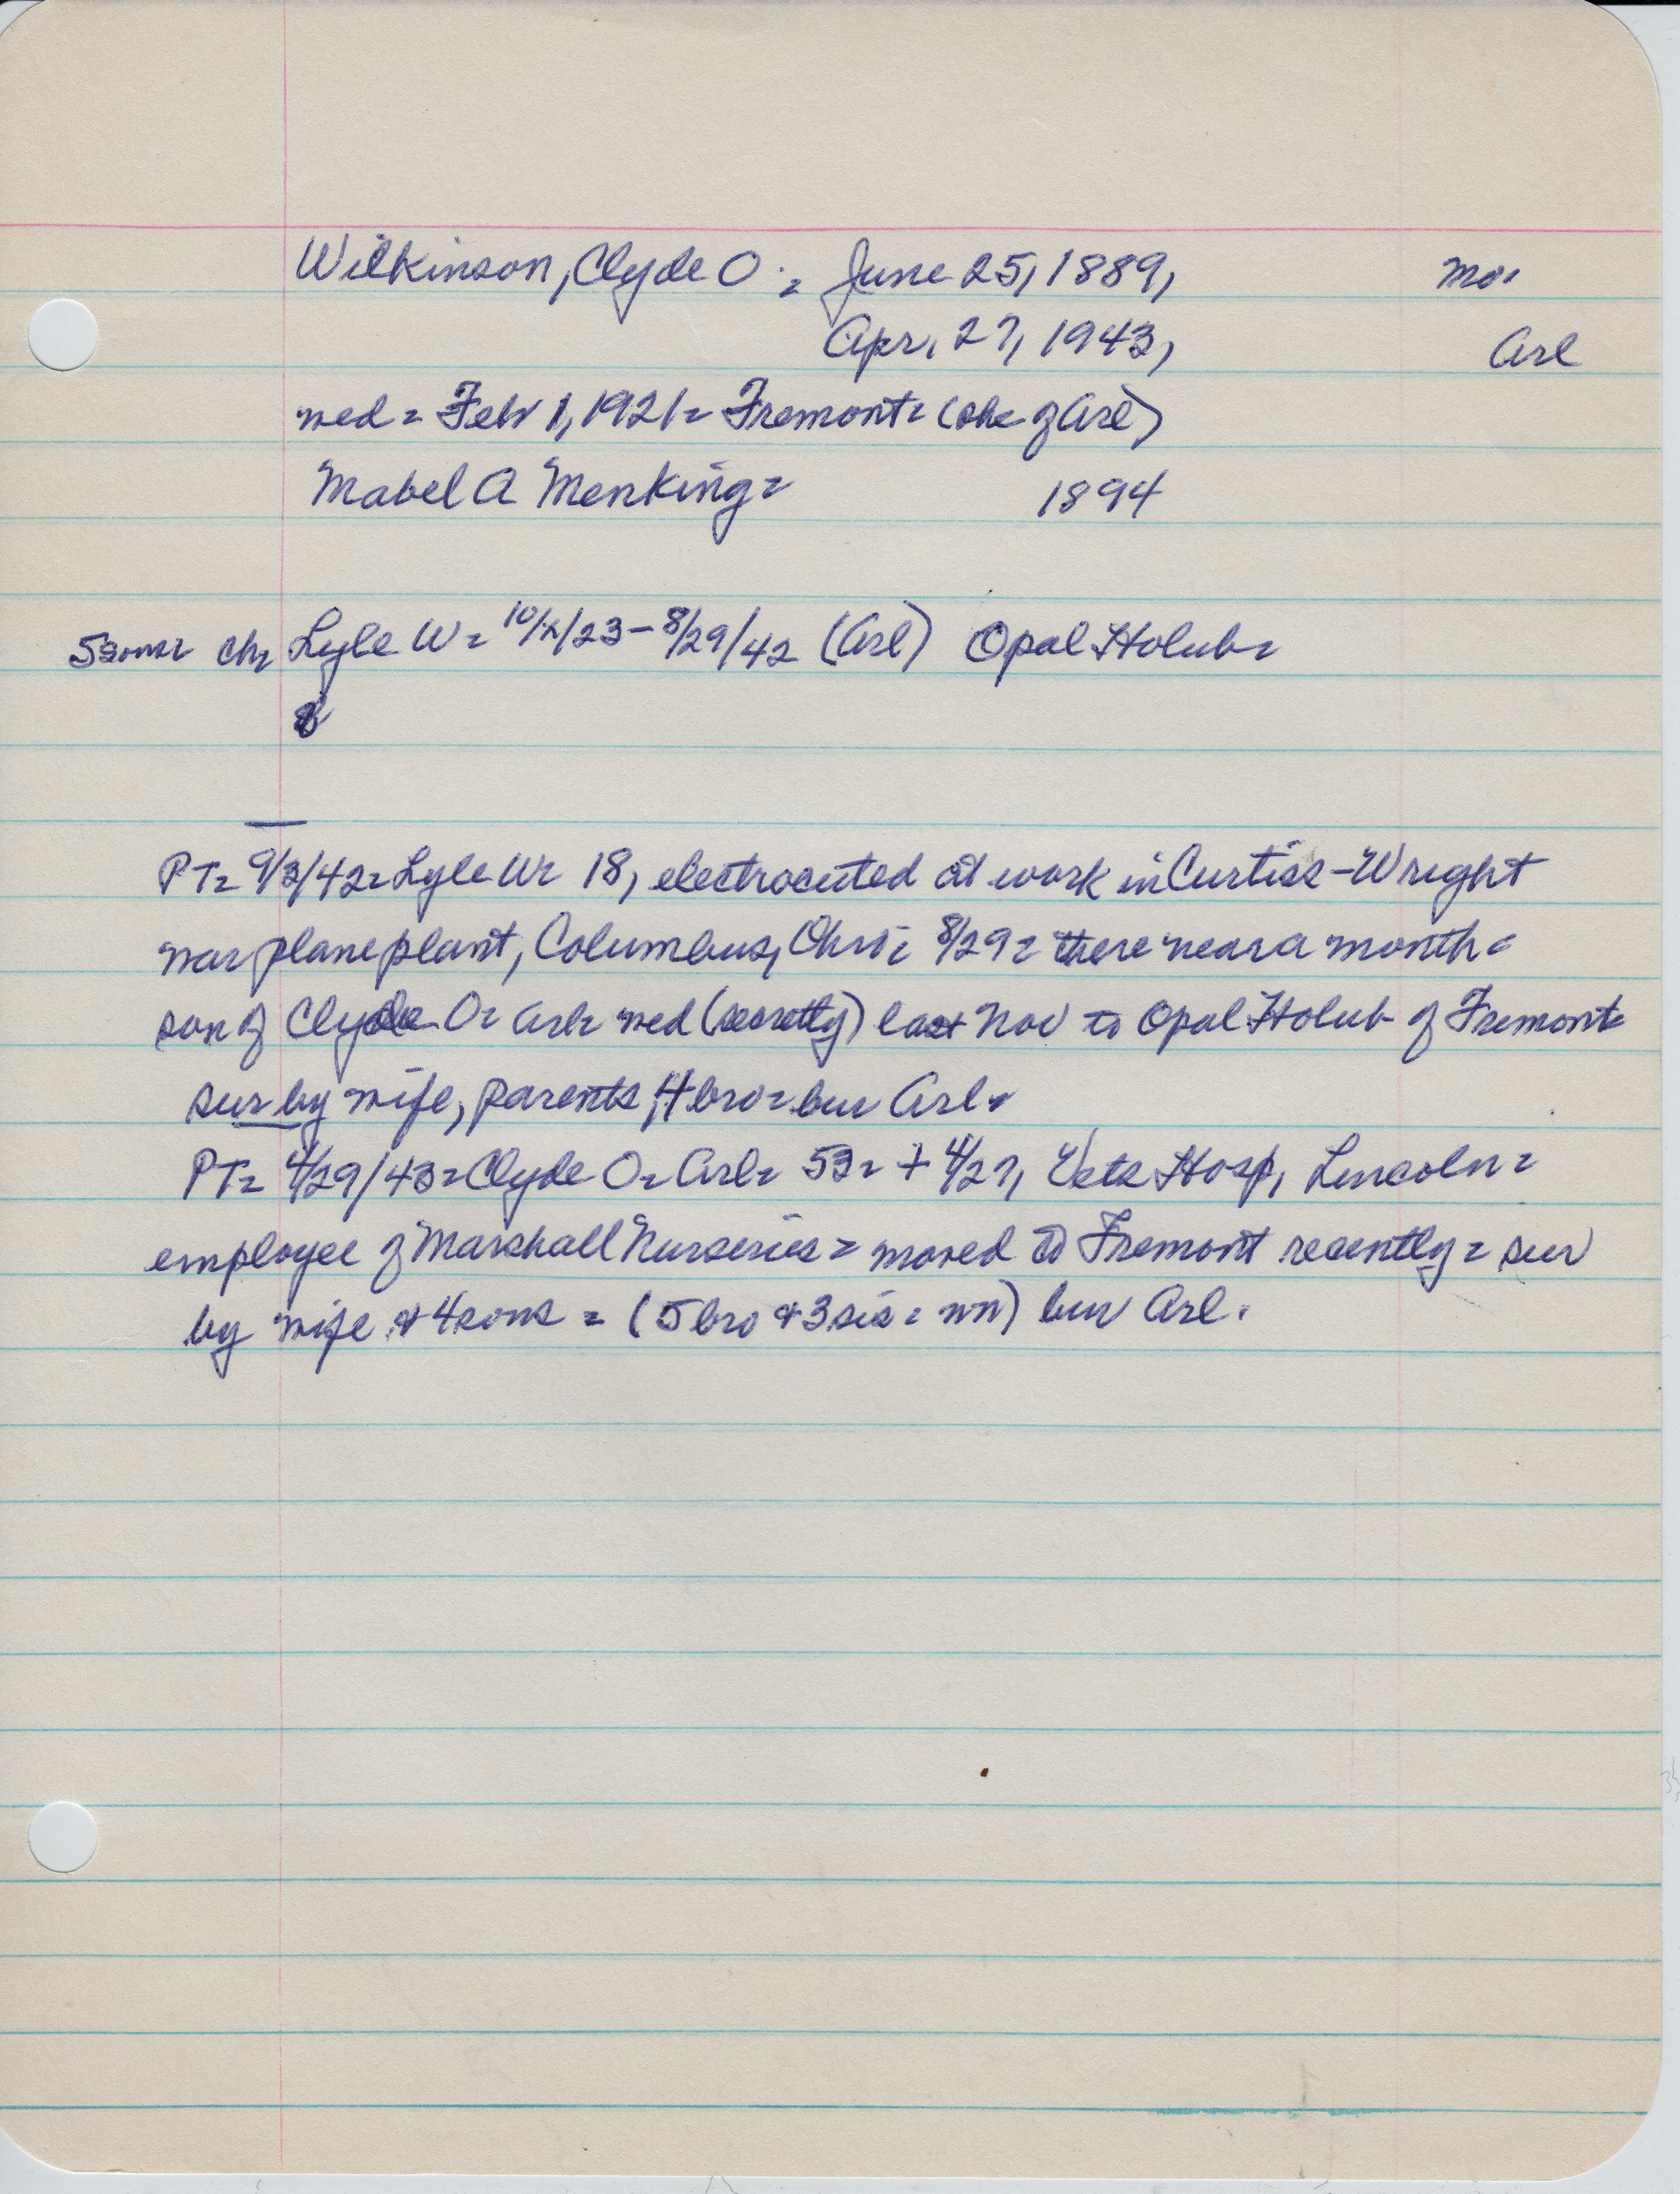 Wilkinson, Clyde O. = June 25, 1889, Mo.
Apr. 27, 1943, Arl
wed = Feb 1, 1921 = Fremont = (she of Arl)
Mabel A Menking = 1894
5 sons = ch = Lyle W = 10/ /23 - 8/29/42 (Arl) Opal Holub =
PT = 9/3/42 = Lyle W = 18, electrocuted at work in Curtiss-Wright
war plane plant, Columbus, Ohio = 8/29 = there near a month =
son of Clyde O = Arl = wed (secretly) last Nov to Opal Holub of Fremont =
sur by wife, parents, 4 bro = bur Arl.
PT = 4/29/43 = Clyde O = Arl = 53 = + 4/27, Vets Hosp, Lincoln =
employee of Marshall Nurseries = moved to Fremont recently = sur
by wife & 4 sons = (5 bro & 3 sis = nn) bur Arl.